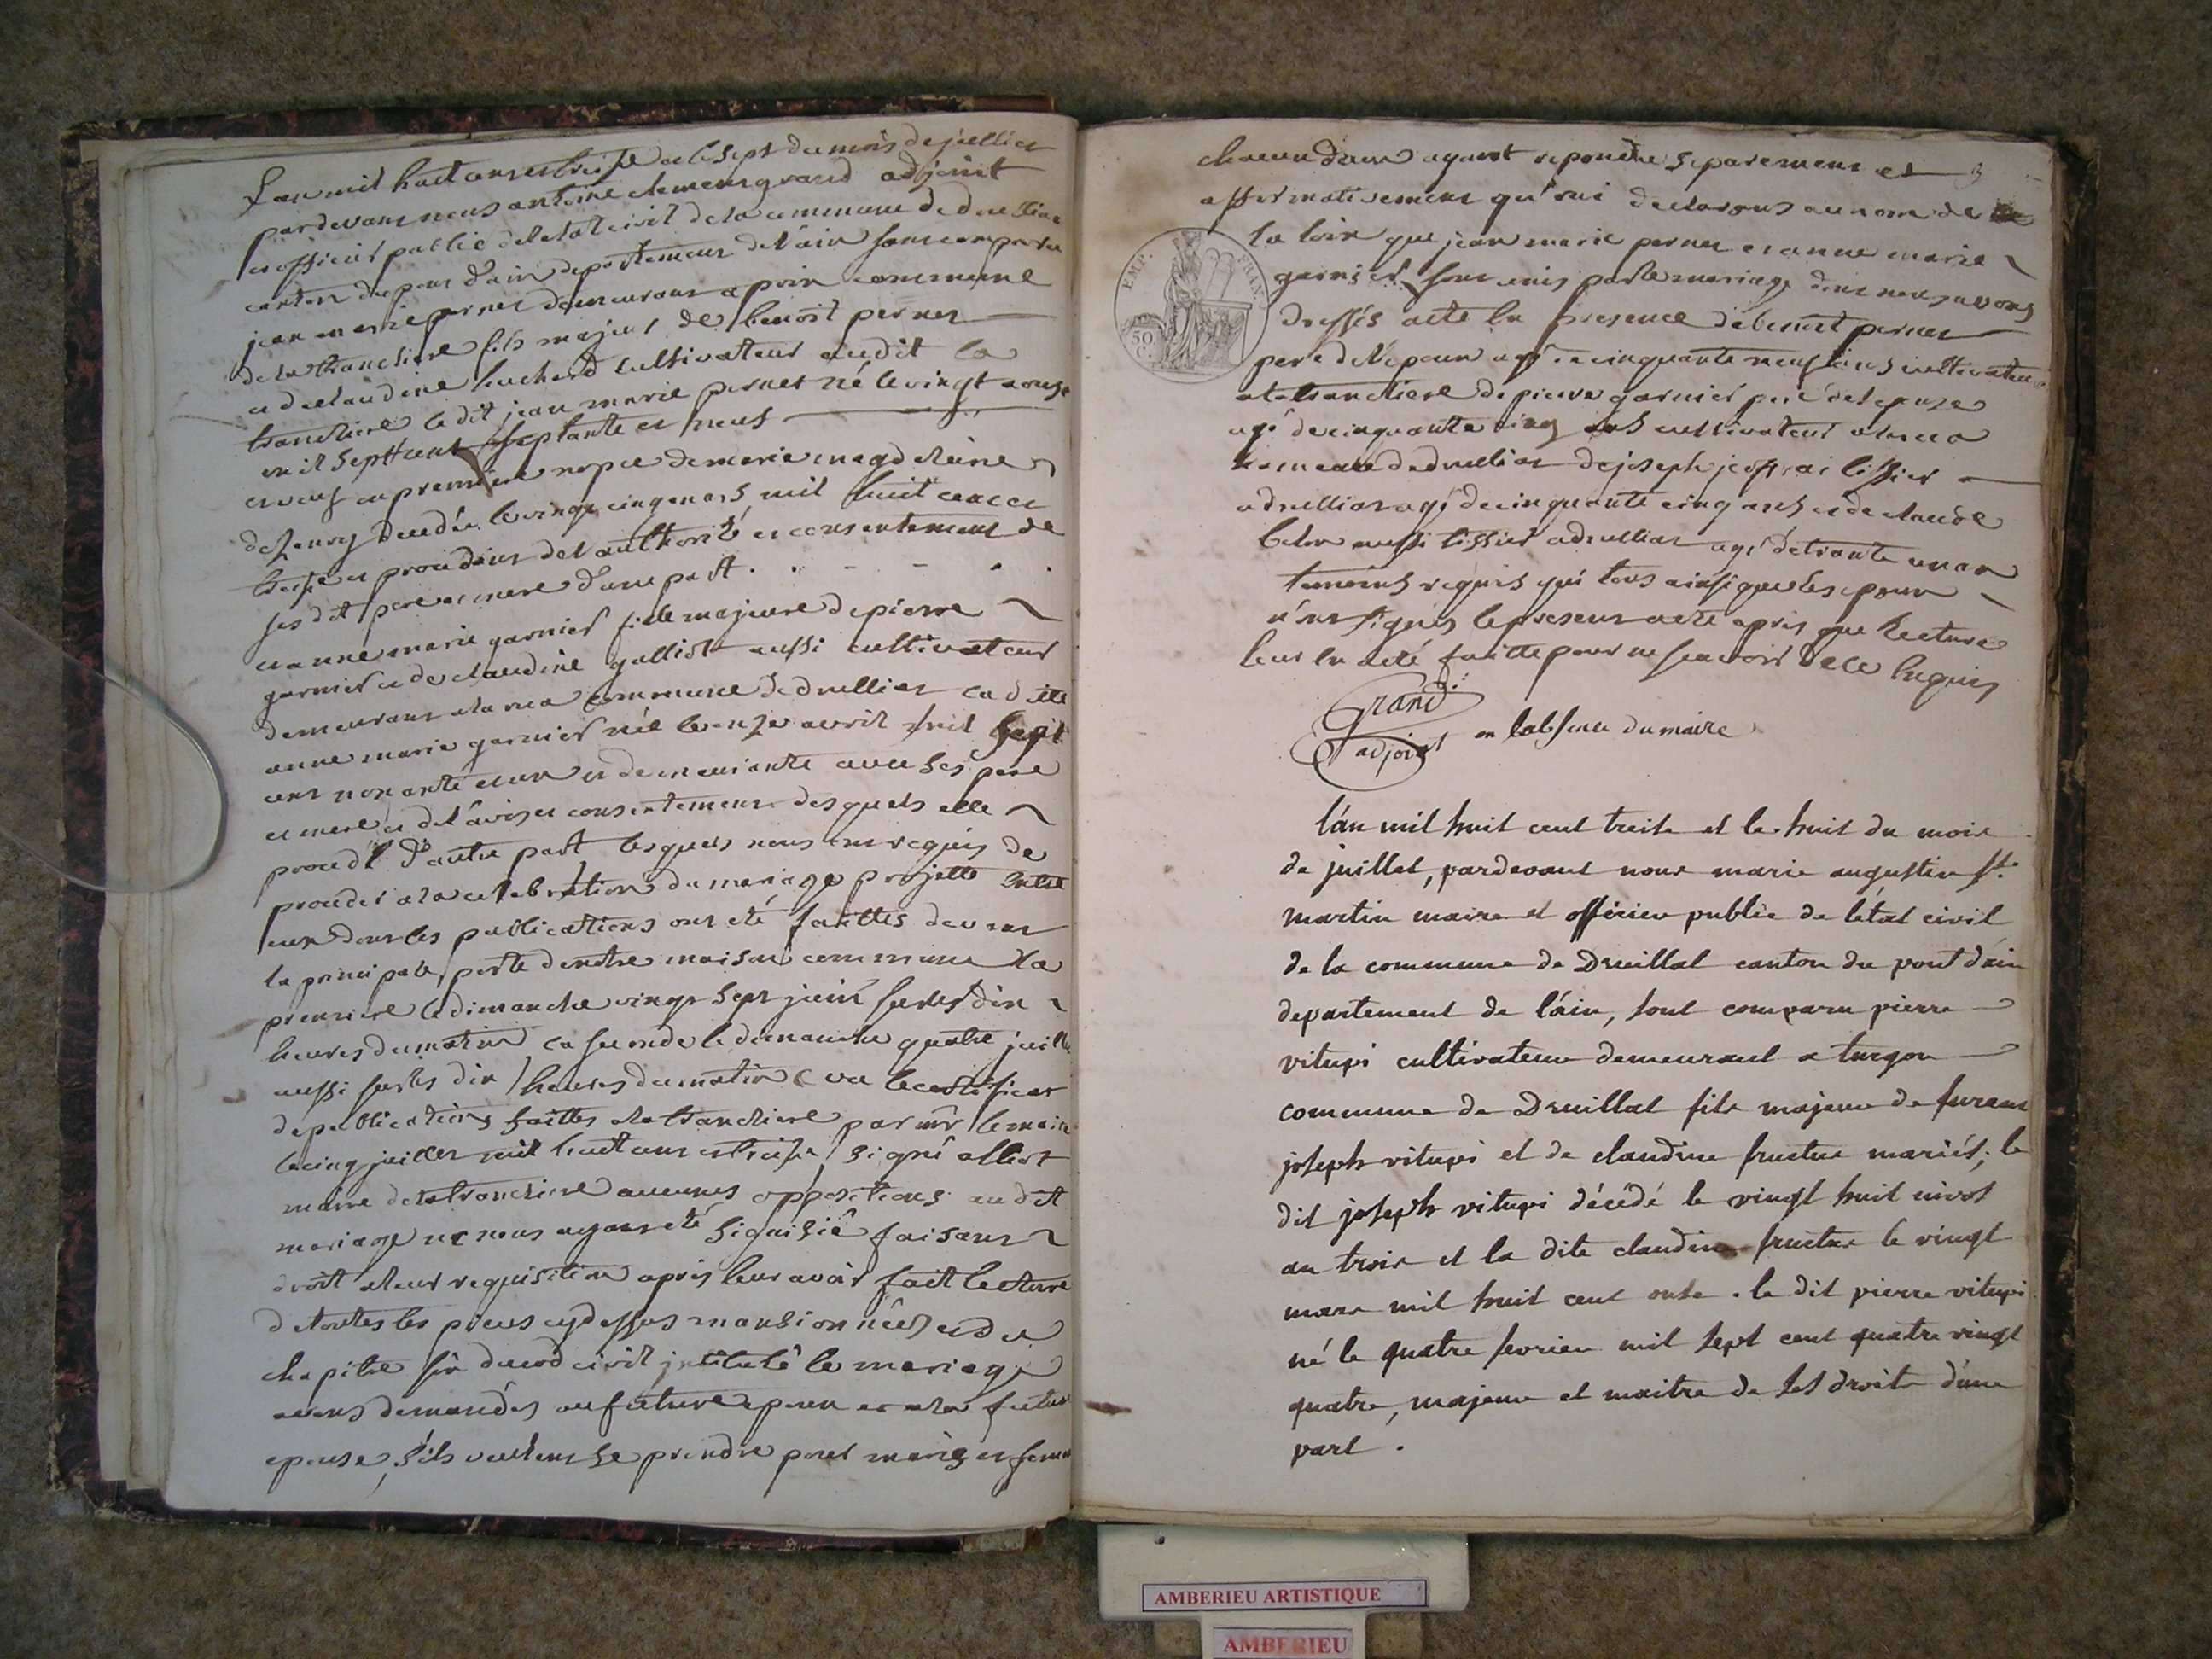 L'an mil huit cent treise et le sept du mois de juillier
par devant nous antoine clement grand adjoint
et officier public de l'etat civil de la commune de druillias
canton du pont d'ain departement de l'ain sont comparu
jean marie pernet demeurant a commune
de la tranchiere fils majeur de benoit pernet
et de claudine buchard cultivateur audit la
tranchiere le dit jean marie pernet né le vingt
mil sept cent septante et neuf
et veuf en premiere nopce de marie magdeleine
decedée le vingt cinq mars mil huit cent
treise et procedant de l'authorité et consentement de
ses dit pere et mere d'une part
et anne marie garnier fille majeure de pierre
garnier et de claudine galliot aussi cultivateur
demeurant a la rua commune de druillias la ditte
anne marie garnier née le onze avril mil sept
cent nonante et un et demeurante avec ses pere
et mere et de l'avis et consentement desquels elle
procede d'autre part lesquels nous ont requis de
proceder a la celebration du mariage projetté entre
eux dont les publications ont été faittes devant
la principale porte de notre maison commune la
premiere le dimanche vingt sept juin sur les dix
heures du matin la seconde le dimanche quatre juillet
aussi sur les dix heures du matin vu le certificat
de publications faittes a la tranchiere par mr le maire
le cinq juillet mil huit cent treise signé alliot
maire de la tranchiere aucunes oppositions audit
mariage ne nous ayant été signifié faisant
droit a leur requisition après leur avoir fait lecture
de toutes les pieces cy dessus mansionnées et du
chapitre six du cod civil intitulé le mariage
avons demandés au future epoux et a la future
epouse s'ils veulent se prendre pour mari et femme
chacun d'eux ayant repondu separement et
affirmativement qu'oui declarons au nom de
la loix que jean marie pernet et anne marie
garnier sont unis par le mariage dont nous avons
dressés acte en presence de benoit pernet
pere de l'epoux agé de cinquante neuf ans cultivateur
a la tranchiere de pierre garnier peré de l'epouse
agé de cinquante cinq ans cultivateur a la rua
hameau de druillias de joseph jeoffrai tissier
a druillias agé de cinquante cinq ans et de claude
belon aussi tissier a druillias agé de trante un an
temoins requis qui tous ainsi que les epoux
n'ont signés le present acte apris que lecture
leur en a été faitte pour ne scavoir de ce enquis
Grand
adjoint en l'absence du maire
l'an mil huit cent treise et le huit du mois
de juillet, pardevant nous marie augustin st.
martin maire et officier public de l'état civil
de la commune de Druillat canton du pont d'ain
departement de l'ain, sont comparu pierre
vitupi cultivateur demeurant a turgon
commune de Druillat fils majeur de furent
joseph vitupi et de claudine fructus mariés; le
dit joseph vitupi décédé le vingt huit nivos
an trois et la dite claudine fructus le vingt
mars mil huit cent onse. le dit pierre vitupi
né le quatre fevrier mil sept cent quatre vingt
quatre, majeur et maitre de ses droits d'une
part.
EMP. FRAN.
50
C.
AMBERIEU ARTISTIQUE
AMBERIEU